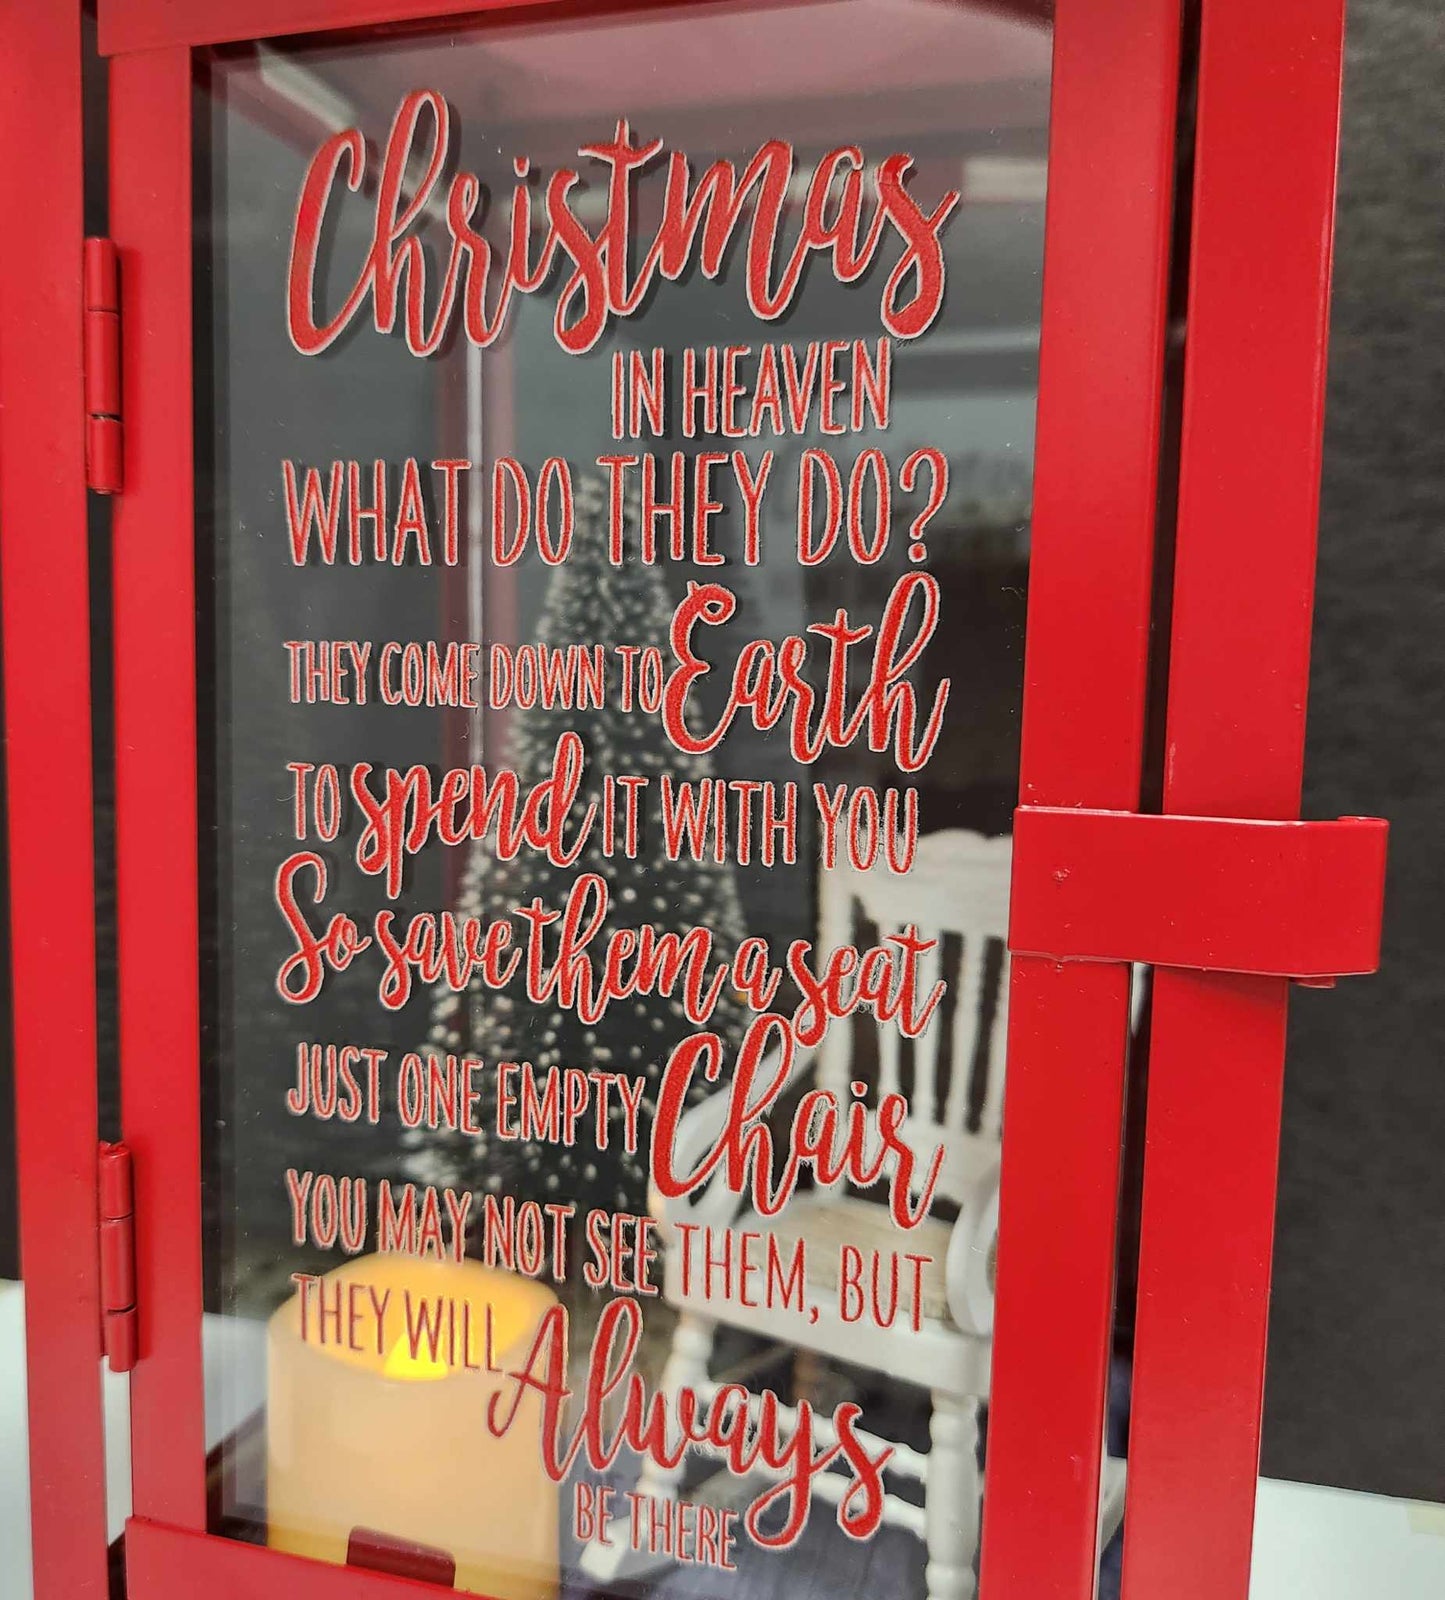 Christmas
IN HEAVEN
WHAT DO THEY DO?
THEY COME DOWN TO Earth
TO spend IT WITH YOU
So save them a seat
JUST ONE EMPTY Chair
YOU MAY NOT SEE THEM, BUT
THEY WILL Always
BE THERE